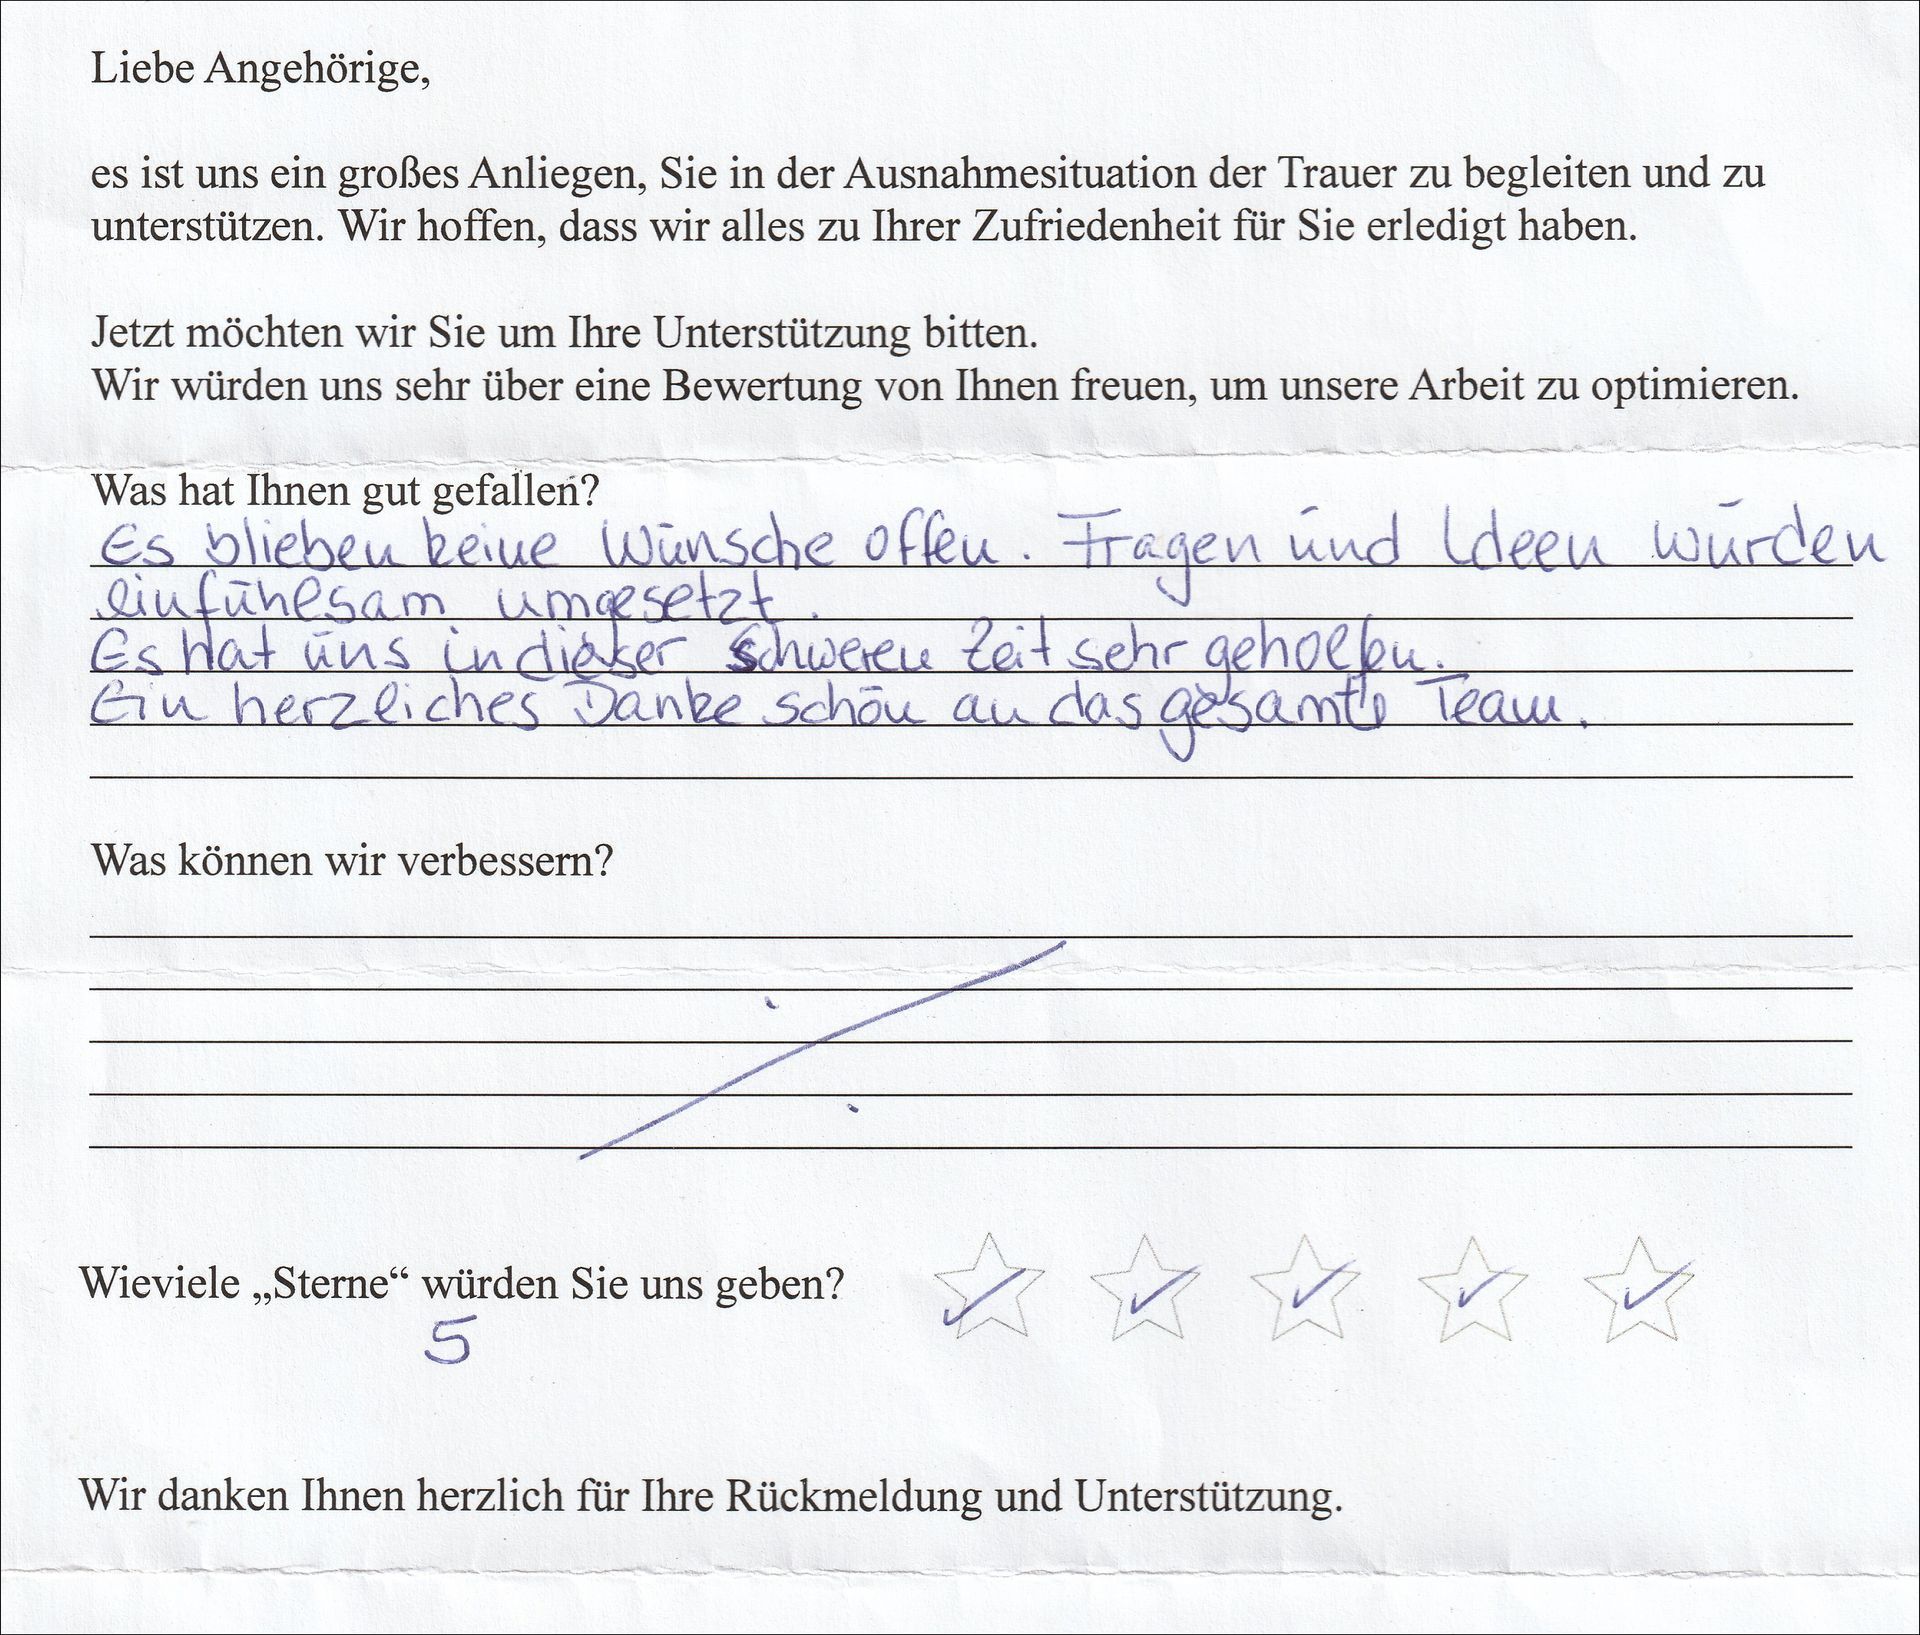 Liebe Angehörige,
es ist uns ein großes Anliegen, Sie in der Ausnahmesituation der Trauer zu begleiten und zu
unterstützen. Wir hoffen, dass wir alles zu Ihrer Zufriedenheit für Sie erledigt haben.
Jetzt möchten wir Sie um Ihre Unterstützung bitten.
Wir würden uns sehr über eine Bewertung von Ihnen freuen, um unsere Arbeit zu optimieren.
Was hat Ihnen gut gefallen?
Es blieben keine Wünsche offen. Fragen und Ideen wurden
einfühlsam umgesetzt.
Es hat uns in dieser schweren Zeit sehr geholfen.
Ein herzliches Danke schön an das gesamte Team.
Was können wir verbessern?
Wieviele „Sterne“ würden Sie uns geben?
5
Wir danken Ihnen herzlich für Ihre Rückmeldung und Unterstützung.